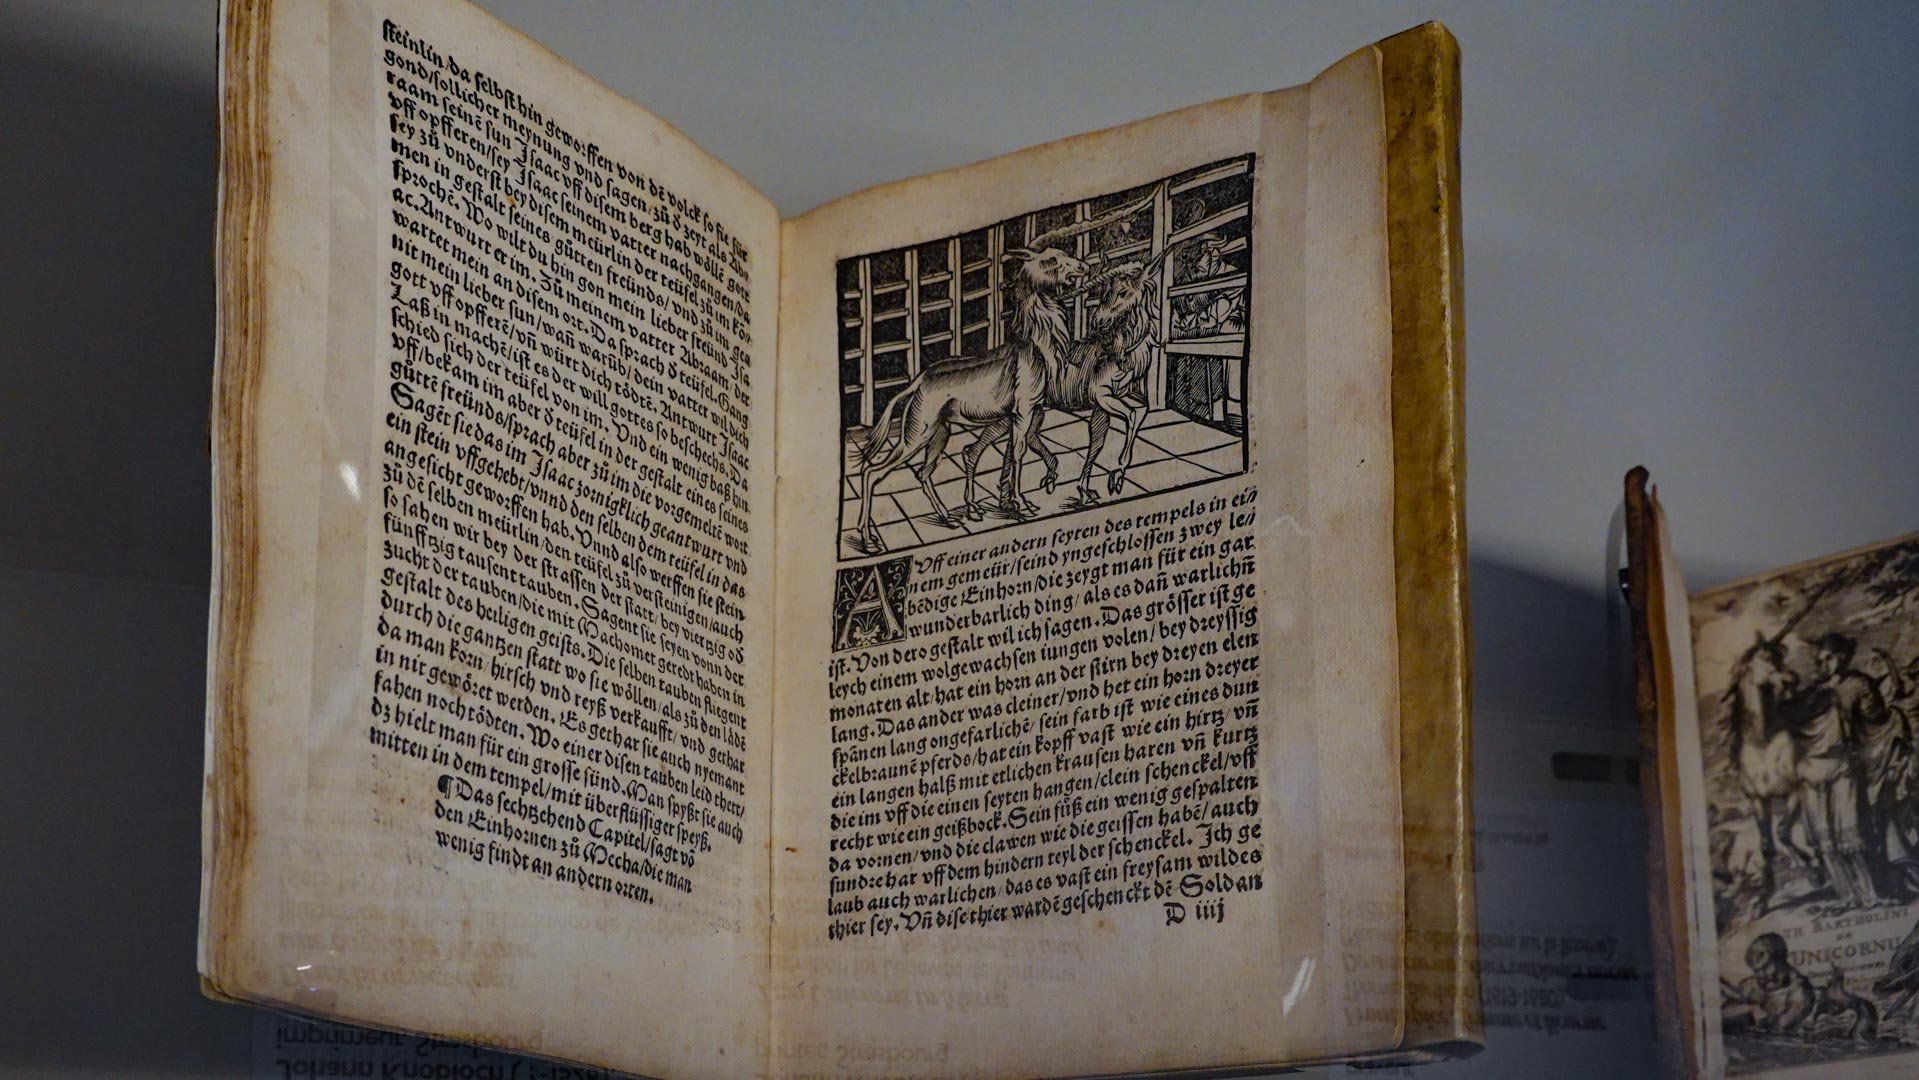 steinlin/da selbst hin geworffen von dē volck so sie für
gond/sollicher meynung vnd sagen/zů d̄ zeyt als Ab
raam seinē sun Isaac vff disem berg hab wöllē gott
vff opfferen/sey Isaac seinem vatter nachgangen/da
sey zů vnderst bey disem meürlin der teüfel zů im kō-
men in gestalt seines gůtten freünds/vnd zů im ge
sprochē. Wo wilt du hin gon mein lieber freünd Isa
ac. Antwurt er im. Zů meinem vatter Abraam/der
wartet mein an disem ort. Da sprach d̄ teüfel. Gang
nit mein lieber sun/wañ warūb/dein vatter wil dich
gott vff opfferē/vñ würt dich tödtē. Antwurt Isaac
Laß in machē/ist es der will gottes so beschechs. Da
schied sich der teüfel von im. Vnd ein wenig baß hin
vff/bekam im aber d̄ teüfel in der gestalt eines seines
gůttē freünds/sprach aber zů im die vorgemeltē wort
Sagēt sie das im Isaac zorniglich geantwurt vnd
ein stein vffgehebt/vnnd den selben dem teüfel in das
angesicht geworffen hab. Vnnd also werffen sie stein
zů dē selben meürlin/den teüfel zů versteinigen/auch
so sahen wir bey der strassen der statt/bey viertzig od̄
fünfftzig tausent tauben. Sagent sie seyen vonn der
zucht der tauben/die mit Machomet geredt haben in
gestalt des heiligen geists. Die selben tauben fliegent
durch die gantzen statt wo sie wöllen/als zů den lädē
da man korn/hirsch vnd reyß verkaufft/vnd gethar
in nit gewöret werden. Es gethar sie auch nyemant
fahen noch tödten. Wo einer disen tauben leid thett/
dz hielt man für ein grosse sünd. Man spyßt sie auch
mitten in dem tempel/mit überflüssiger speyß.
¶ Das sechtzehend Capitel/sagt vō
den Einhornen zů Mecha/die man
wenig findt an andern orten.
AVff einer andern seyten des tempels in ei//
nem gemeür/seind yngeschlossen zwey le//
bēdige Einhorn/die zeygt man für ein gar
wunderbarlich ding/als es dañ warlichñ
ist. Von dero gestalt wil ich sagen. Das grösser ist ge
leych einem wolgewachsen iungen volen/bey dreyssig
monaten alt/hat ein horn an der stirn bey dreyen elen
lang. Das ander was cleiner/vnd het ein horn dreyer
spānen lang ongefarlichē/sein farb ist wie eines dun
ckelbraunē pferds/hat ein kopff vast wie ein hirtz/vñ
ein langen halß mit etlichen krausen haren vñ kurtz
die im vff die einen seyten hangen/clein schenckel/vff
recht wie ein geißbock. Sein fůß ein wenig gespalten
da vornen/vnd die clawen wie die geissen habē/auch
sundre har vff dem hindern teyl der schenckel. Ich ge
laub auch warlichen/das es vast ein freysam wildes
thier sey. Vñ dise thier wardē geschenckt dē Soldan
D iiij
TH BARTHOLINI
DE
UNICORNU
imprimeur, Strasbourg
Johann Knobloch (?-1528),